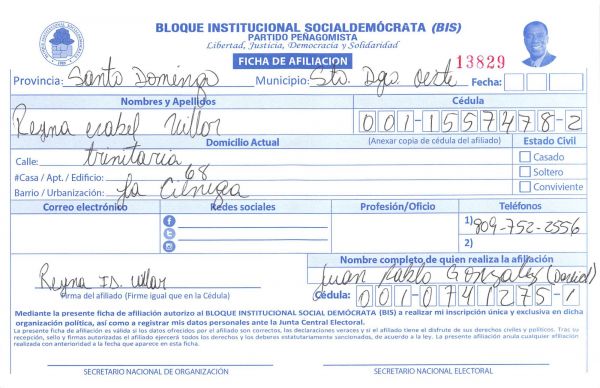 BLOQUE INSTITUCIONAL SOCIALDEMÓCRATA (BIS)
PARTIDO PEÑAGOMISTA
Libertad, Justicia, Democracia y Solidaridad
FICHA DE AFILIACION
13829
Provincia: Santo Domingo Municipio: Sto. Dgo Oeste Fecha:
Nombres y Apellidos Cédula
Reyna esabel Villar 001-1557478-2
Domicilio Actual (Anexar copia de cédula del afiliado) Estado Civil
Calle: trinitaria Casado
#Casa / Apt. / Edificio: 68 Soltero
Barrio / Urbanización: La Cienega Conviviente
Correo electrónico Redes sociales Profesión/Oficio Teléfonos
1) 809-752-2556
2)
Nombre completo de quien realiza la afiliación
Reyna IS. Villar Juan Pablo Gonzalez
Firma del afiliado (Firme igual que en la Cédula) Cédula: 001-0741275-1
Mediante la presente ficha de afiliación autorizo al BLOQUE INSTITUCIONAL SOCIAL DEMÓCRATA (BIS) a realizar mi inscripción única y exclusiva en dicha
organización política, así como a registrar mis datos personales ante la Junta Central Electoral.
La presente ficha de afiliación es válida si los datos ofrecidos por el afiliado son correctos, las declaraciones veraces y si el afiliado tiene el disfrute de sus derechos civiles y políticos. Tras su
recepción, sello y firmas autorizadas el afiliado ejercerá todos los derechos y los deberes estatutariamente sancionados, de acuerdo a la ley. La presente afiliación anula cualquier afiliación
realizada con anterioridad a la fecha que aparece en esta ficha.
SECRETARIO NACIONAL DE ORGANIZACIÓN SECRETARIO NACIONAL ELECTORAL